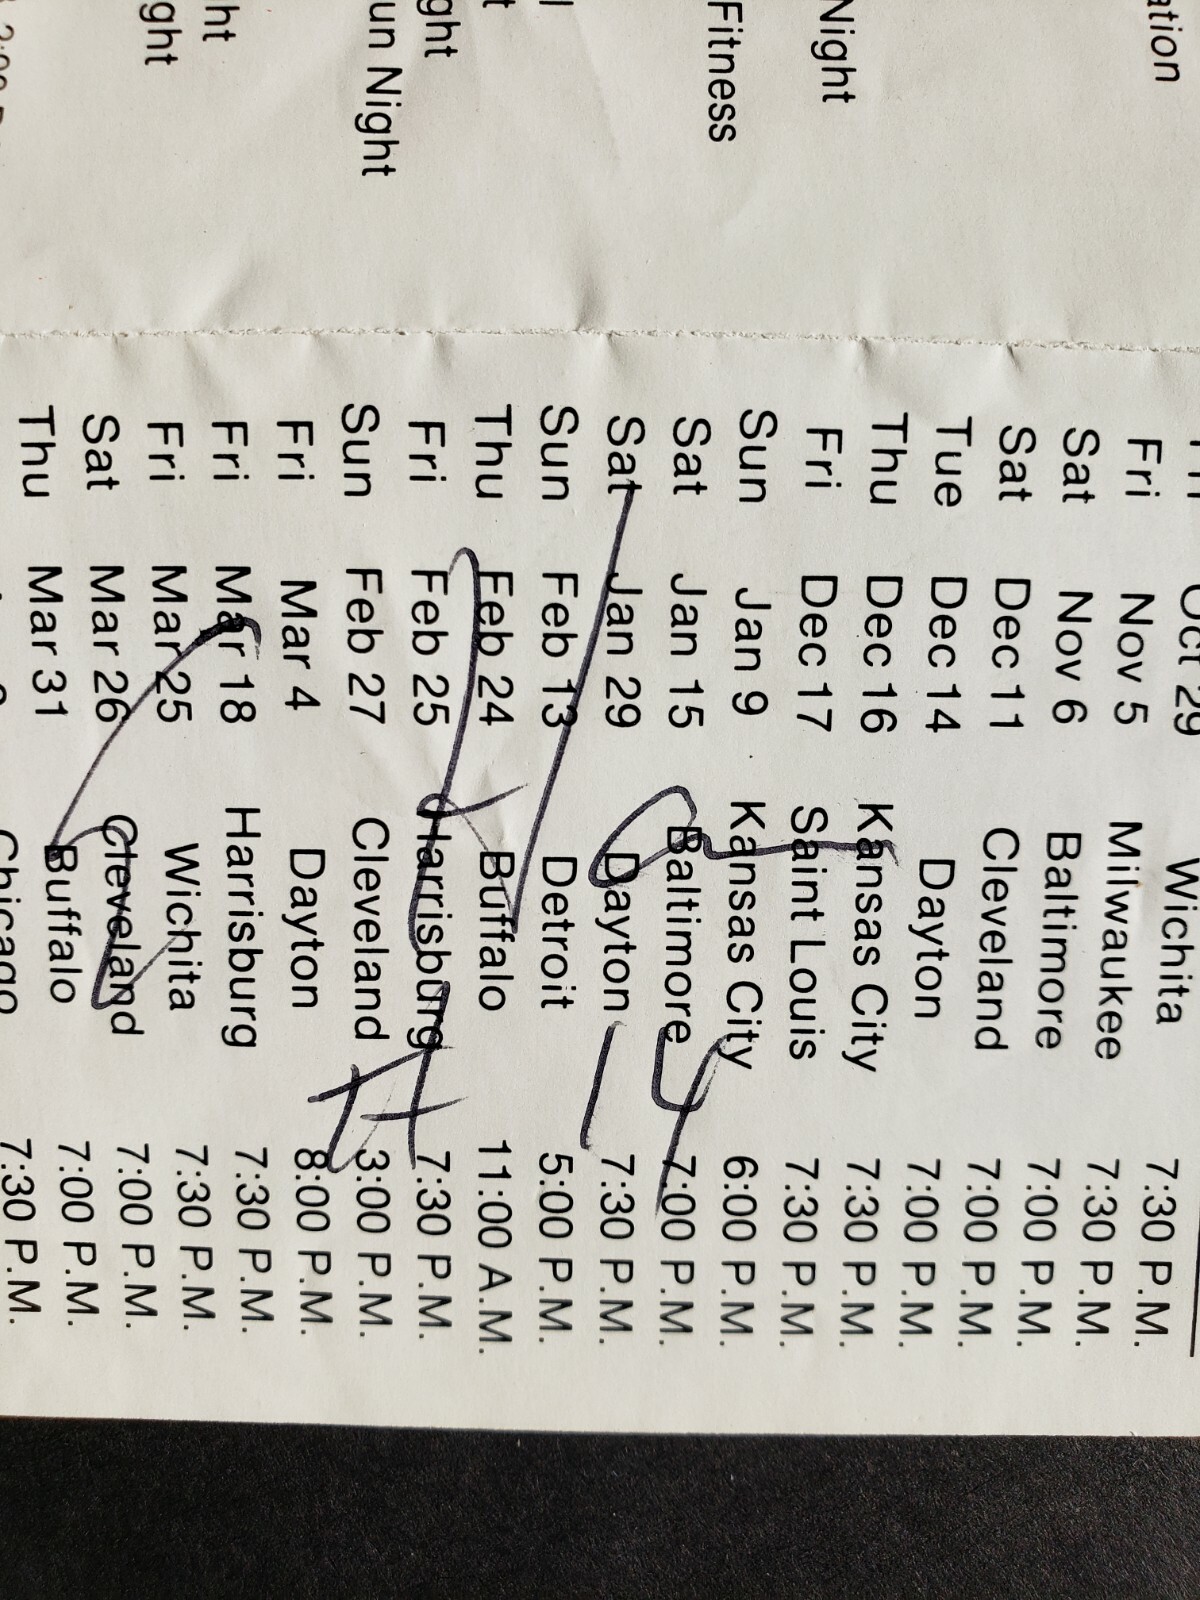 ation
Night
Fitness
ght
un Night
ht
ght
Oct 29 Wichita 7:30 P.M.
Fri Nov 5 Milwaukee 7:30 P.M.
Sat Nov 6 Baltimore 7:00 P.M.
Sat Dec 11 Cleveland 7:00 P.M.
Tue Dec 14 Dayton 7:00 P.M.
Thu Dec 16 Kansas City 7:30 P.M.
Fri Dec 17 Saint Louis 7:30 P.M.
Sun Jan 9 Kansas City 6:00 P.M.
Sat Jan 15 Baltimore 7:00 P.M.
Sat Jan 29 Dayton 7:30 P.M.
Sun Feb 13 Detroit 5:00 P.M.
Thu Feb 24 Buffalo 11:00 A.M.
Fri Feb 25 Harrisburg 7:30 P.M.
Sun Feb 27 Cleveland 3:00 P.M.
Fri Mar 4 Dayton 8:00 P.M.
Fri Mar 18 Harrisburg 7:30 P.M.
Fri Mar 25 Wichita 7:30 P.M.
Sat Mar 26 Cleveland 7:00 P.M.
Thu Mar 31 Buffalo 7:00 P.M.
Chicago 7:30 P.M.